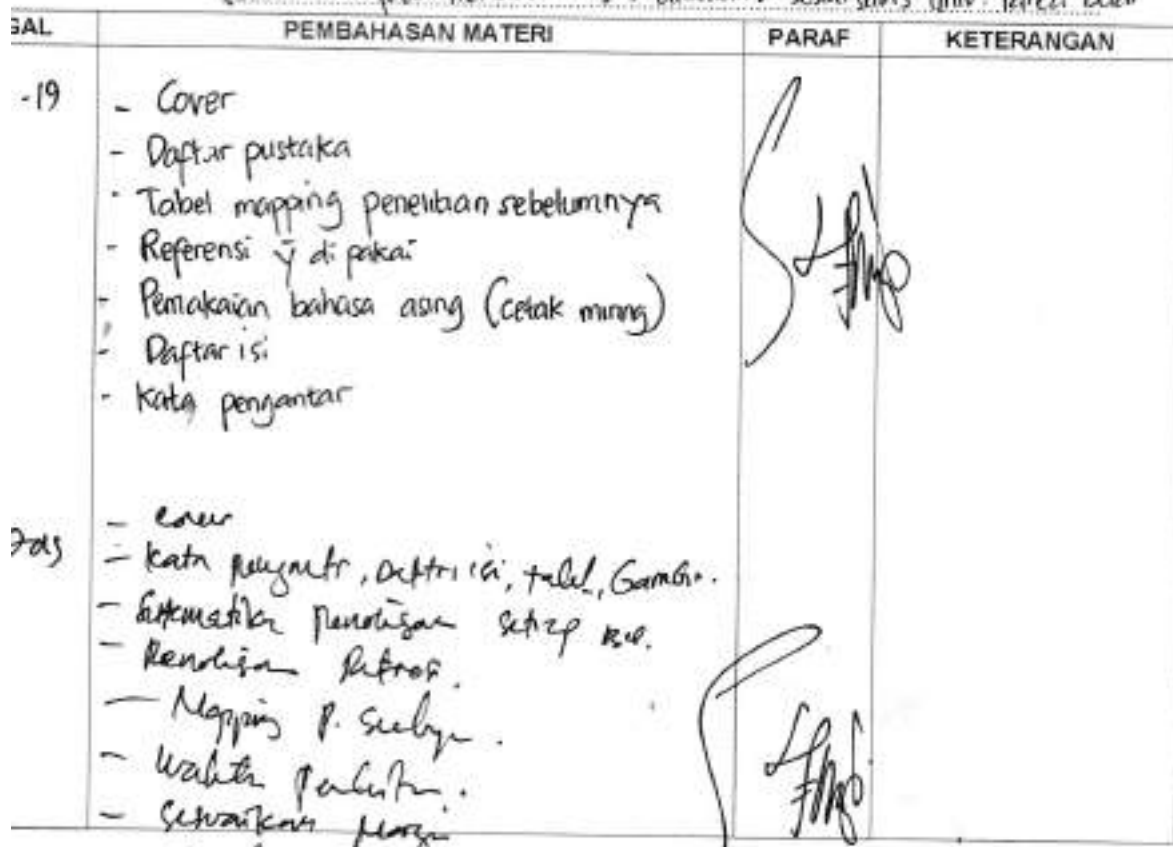 sesuai
GAL PEMBAHASAN MATERI PARAF KETERANGAN
-19 - Cover
- Daftar pustaka
- Tabel mapping penelitian sebelumnya
- Referensi ȳ di pakai
- Pemakaian bahasa asing (cetak miring)
- Daftar isi
- Kata pengantar
- cover
- Kata pengantr, Daftar isi, tabel, Gambar.
- Sistematika penulisan setiap Bab.
- Penulisan
- Mapping P.
- Waktu
- Sesuaikan Margin